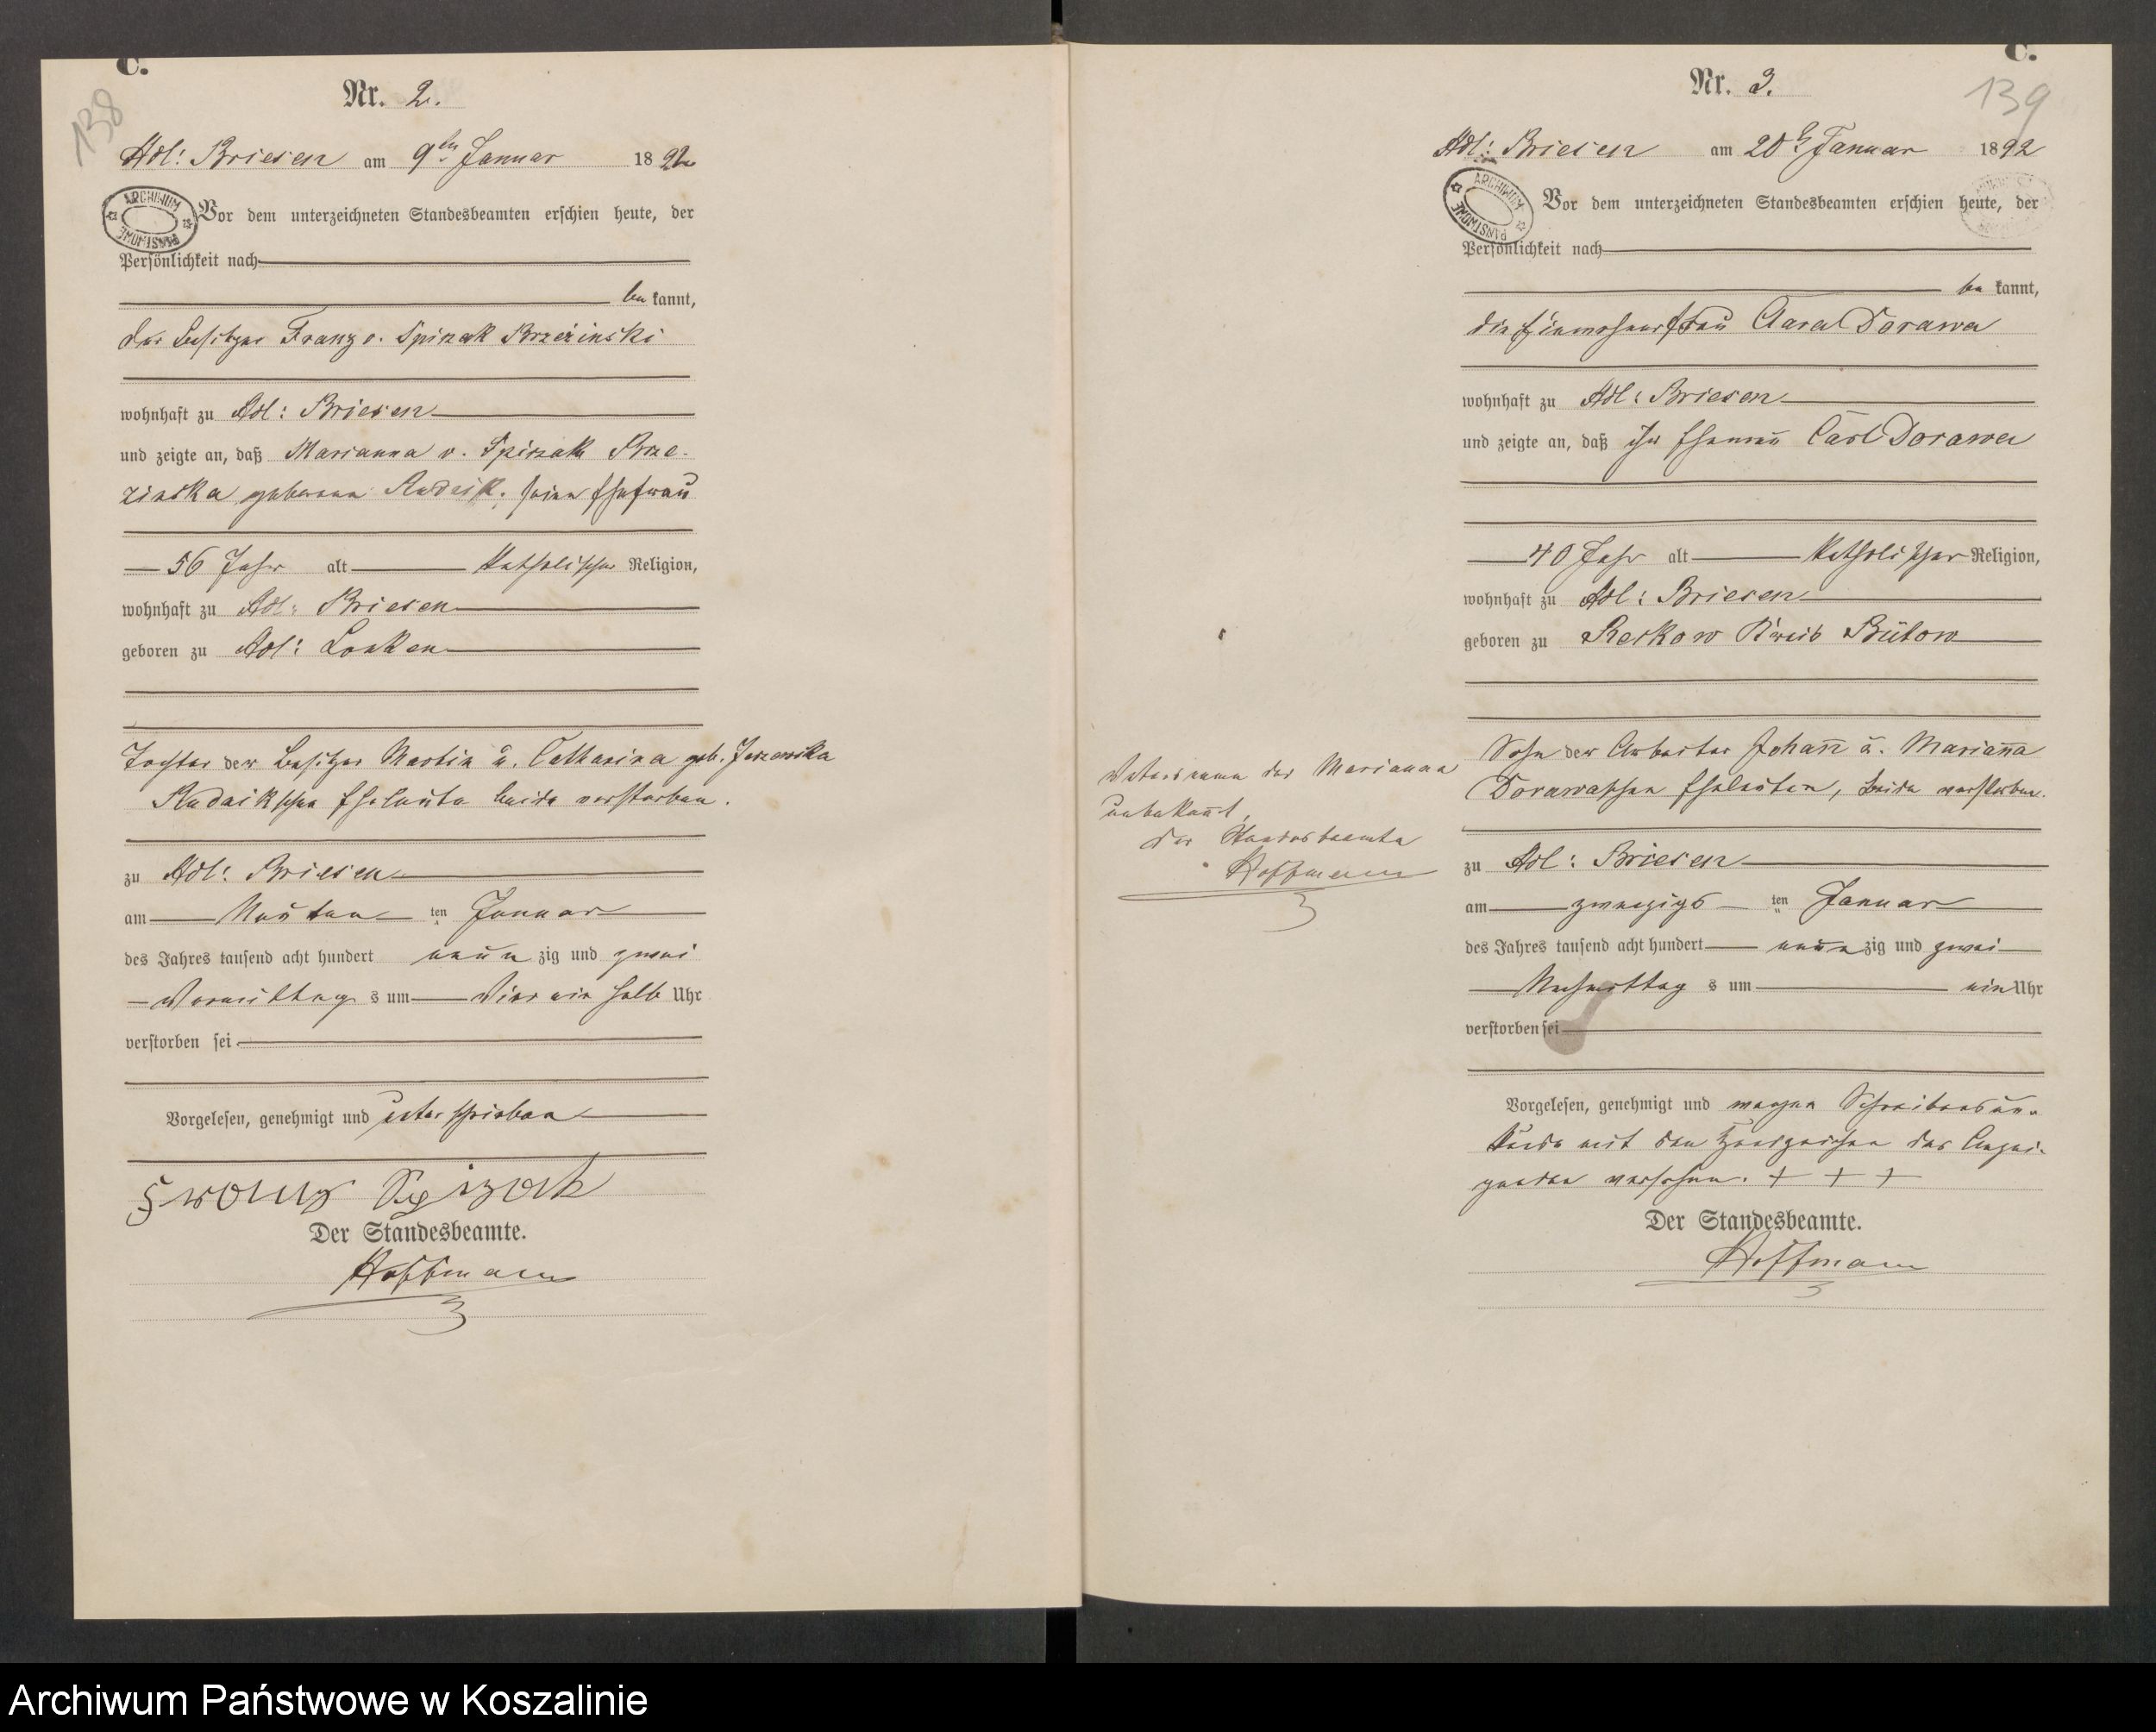 C.
138
Nr. 2.
Adl: Briesen am 9ten Januar 1892
ARCHIWUM PAŃSTWOWE
Vor dem unterzeichneten Standesbeamten erschien heute, der
Persönlichkeit nach
be kannt,
der Besitzer Franz v. Spiczak Brzezinski
wohnhaft zu Adl: Briesen
und zeigte an, daß Marianna v. Spiczak Brze-
zinska geborene Rudaik, seine Ehefrau
56 Jahr alt katholischer Religion,
wohnhaft zu Adl: Briesen
geboren zu Adl: Lonken
Tochter der Besitzer Martin u. Catharina geb. Jerzewska
Rudaikschen Eheleute beide verstorben.
zu Adl: Briesen
am Neunten ten Januar
des Jahres tausend acht hundert neun zig und zwei
Vormittag s um Vier ein halb Uhr
verstorben sei
Vorgelesen, genehmigt und unterschrieben
Franz Spizak
Der Standesbeamte.
Hoffmann
C.
139
Nr. 3.
Adl: Briesen am 20t Januar 1892
ARCHIWUM PAŃSTWOWE
Vor dem unterzeichneten Standesbeamten erschien heute, der
Persönlichkeit nach
be kannt,
die Einwohnerfrau Clara Dorawa
wohnhaft zu Adl: Briesen
und zeigte an, daß ihr Ehemann Carl Dorawa
40 Jahr alt katholischer Religion,
wohnhaft zu Adl: Briesen
geboren zu Reckow Kreis Bütow
Sohn der Arbeiter Johann u. Marianna
Dorawaschen Eheleuten, beide verstorben.
Vatersname der Marianna
unbekannt,
der Standesbeamte
Hoffmann
zu Adl: Briesen
am zwanzigs ten Januar
des Jahres tausend acht hundert neun zig und zwei
Nachmittag s um ein Uhr
verstorben sei
Vorgelesen, genehmigt und wegen Schreibensun-
kunde mit den Handzeichen der Anzei-
genden versehen. + + +
Der Standesbeamte.
Hoffmann
Archiwum Państwowe w Koszalinie